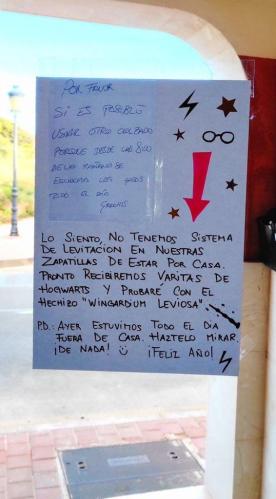 POR FAVOR
SI ES POSIBLE
USAR OTRO CALZADO
PORQUE DESDE LAS 8:00
DE LA MAÑANA SE
ESCUCHAN LOS PASOS
TODO EL DÍA
GRACIAS
LO SIENTO, NO TENEMOS SISTEMA
DE LEVITACIÓN EN NUESTRAS
ZAPATILLAS DE ESTAR POR CASA.
PRONTO RECIBIREMOS VARITAS DE
HOGWARTS Y PROBARÉ CON EL
HECHIZO "WINGARDIUM LEVIOSA".
P.D.: AYER ESTUVIMOS TODO EL DÍA
FUERA DE CASA. HÁZTELO MIRAR.
¡DE NADA! ¡FELIZ AÑO!